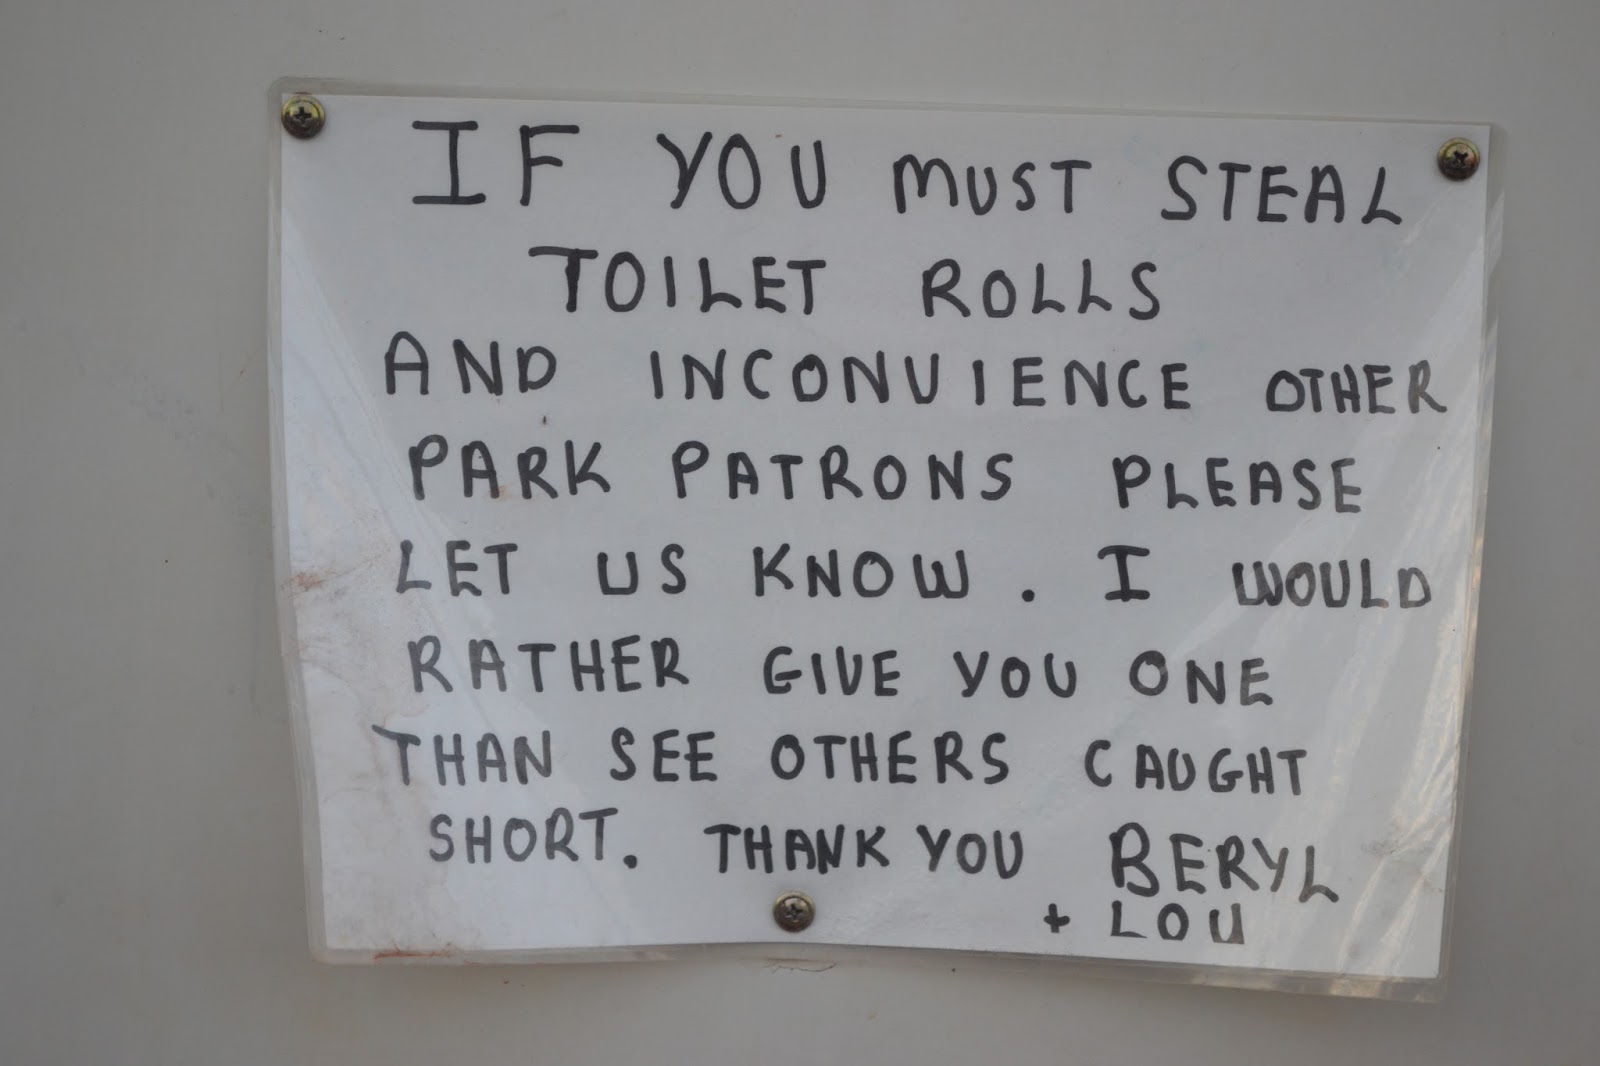 IF YOU MUST STEAL
TOILET ROLLS
AND INCONVIENCE OTHER
PARK PATRONS PLEASE
LET US KNOW. I WOULD
RATHER GIVE YOU ONE
THAN SEE OTHERS CAUGHT
SHORT. THANK YOU BERYL
+ LOU